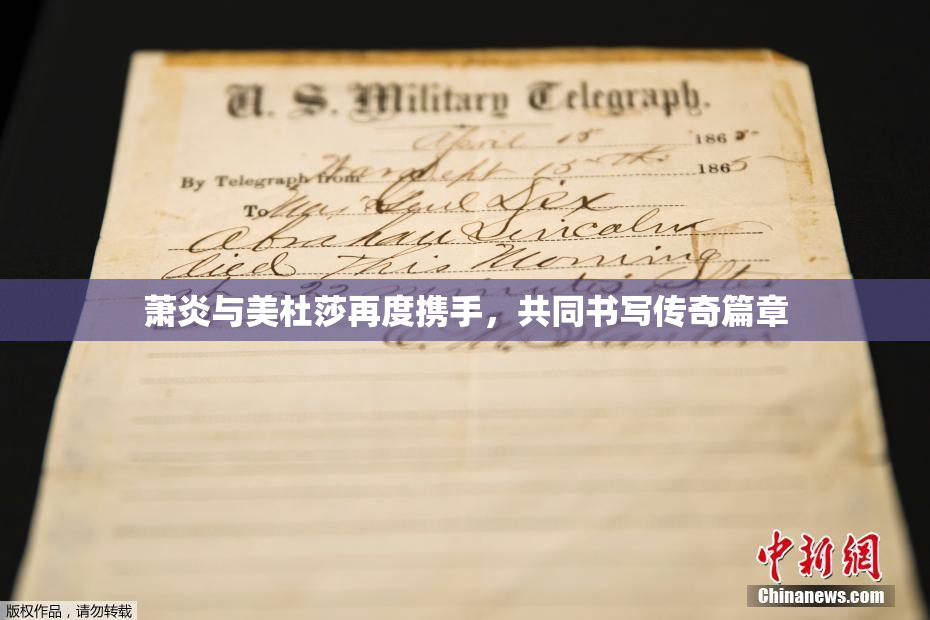 U. S. Military Telegraph.
April 15 1865
By Telegraph from War Dept 15th 1865
To Maj Genl Dix
Abraham Lincoln
died This Morning
at 22 minutes after
萧炎与美杜莎再度携手，共同书写传奇篇章
E. M. Stanton
中新网
Chinanews.com
版权作品，请勿转载